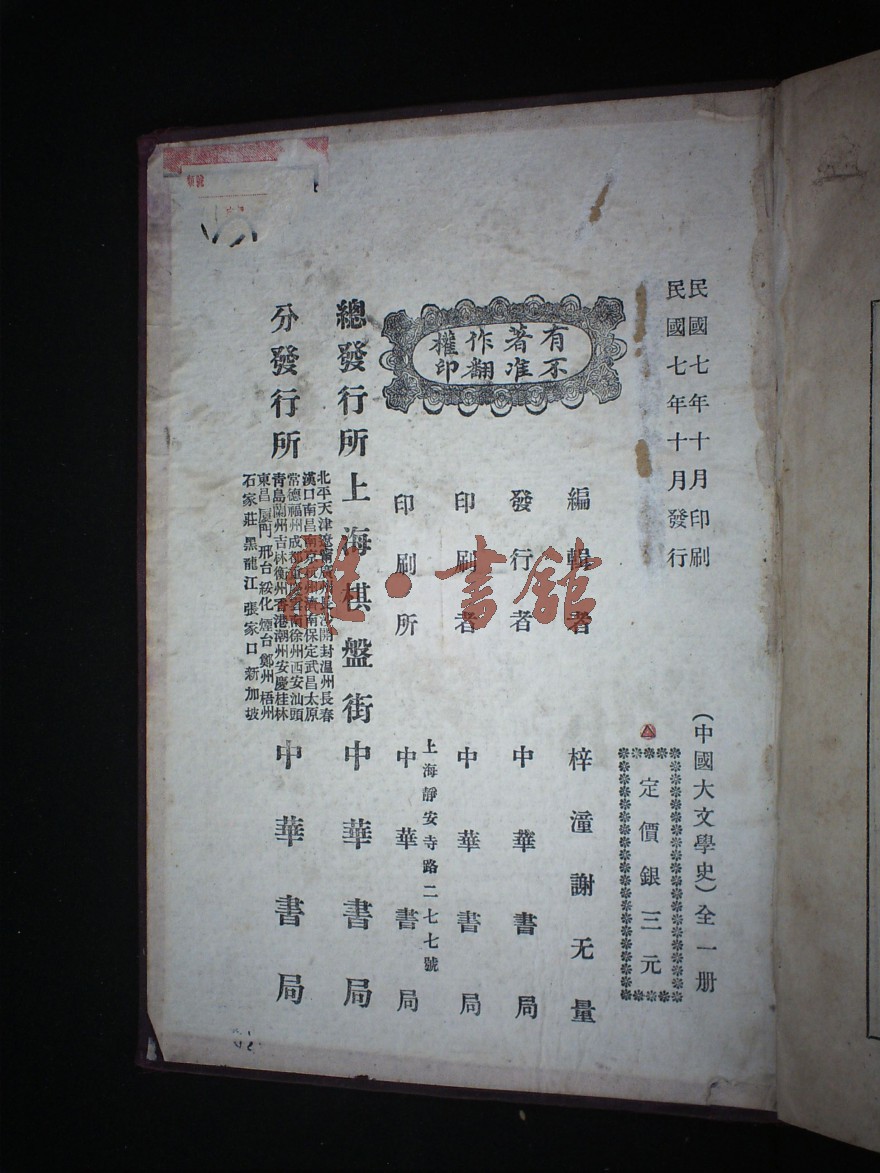 民國七年十月印刷
民國七年十月發行
(中國大文學史)全一册
定價銀三元
有著作權
不准翻印
編輯者 梓潼謝无量
發行者 中華書局
印刷者 中華書局
上海靜安寺路二七七號
印刷所 中華書局
總發行所 上海棋盤街 中華書局
分發行所 中華書局
北平天津遼寧廣州長沙開封温州長春
漢口南昌南京杭州濟南保定武昌太原
常德福州成都重慶雲南徐州西安汕頭
青島蘭州吉林衡州香港潮州安慶桂林
東昌厦門邢台綏化煙台鄭州梧州
石家莊黑龍江張家口新加坡
雜·書館